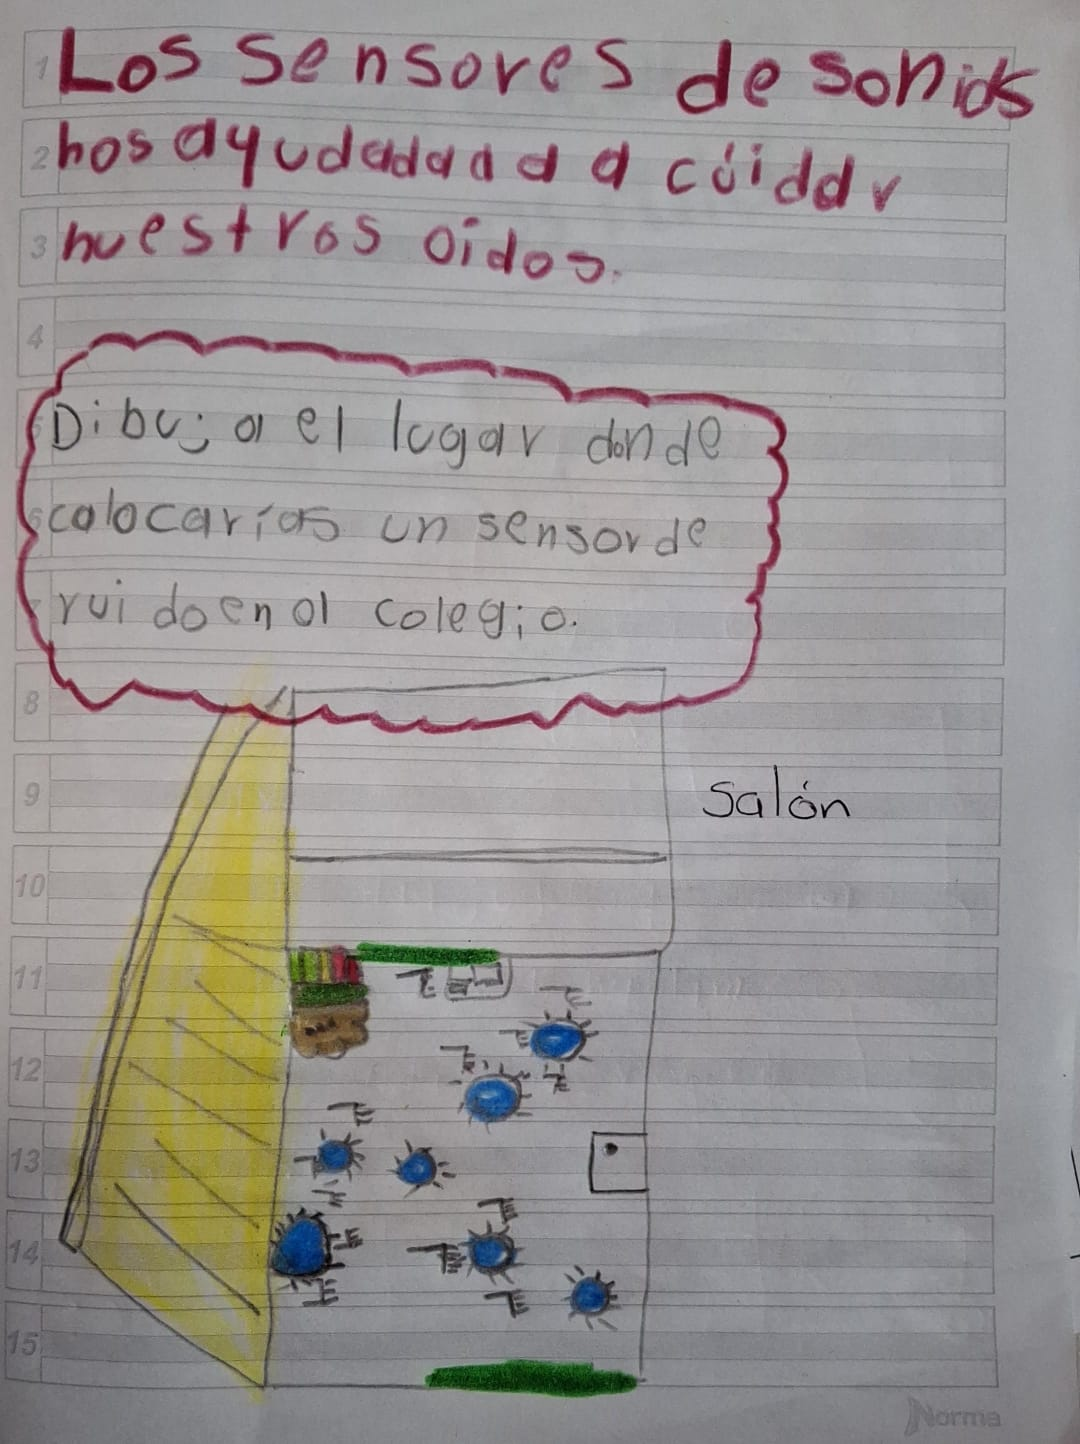 Los sensores de sonids
nos ayudadada a cuidar
nuestros oidos.
Dibuja el lugar donde
colocarias un sensor de
ruido en al colegio.
salón
1
2
3
4
8
9
10
11
12
13
14
15
Norma